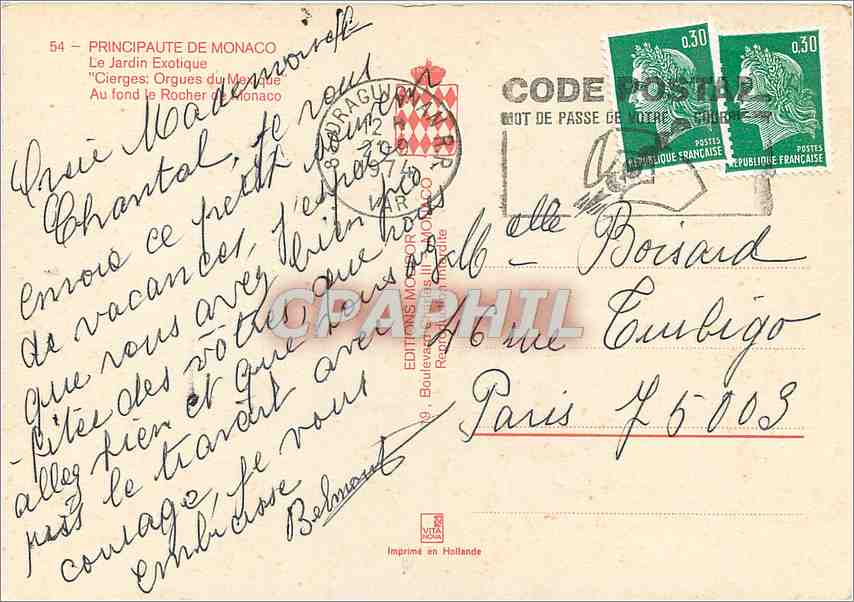 54 – PRINCIPAUTE DE MONACO
Le Jardin Exotique
"Cierges: Orgues du Mexique
Au fond le Rocher de Monaco
Mademoiselle
Chantal, je vous
envoie ce petit souvenir
de vacances, j'espère
que vous avez bien pro
-fitée des vôtres, que vous
allez bien et que
pas le travail avec
courage, je vous
embrasse
Belmont
DRAGUIGNAN R.P.
12 H
1974
VAR
CODE POSTAL
MOT DE PASSE DE VOTRE COURRIER
0,30
POSTES
REPUBLIQUE FRANÇAISE
0,30
POSTES
REPUBLIQUE FRANÇAISE
EDITIONS MOLIPOR
19, Boulevard Charles III - MONACO
Reproduction interdite
CPAPHIL
Melle Boisard
16 rue Turbigo
Paris 75003
VITA NOVA
Imprimé en Hollande